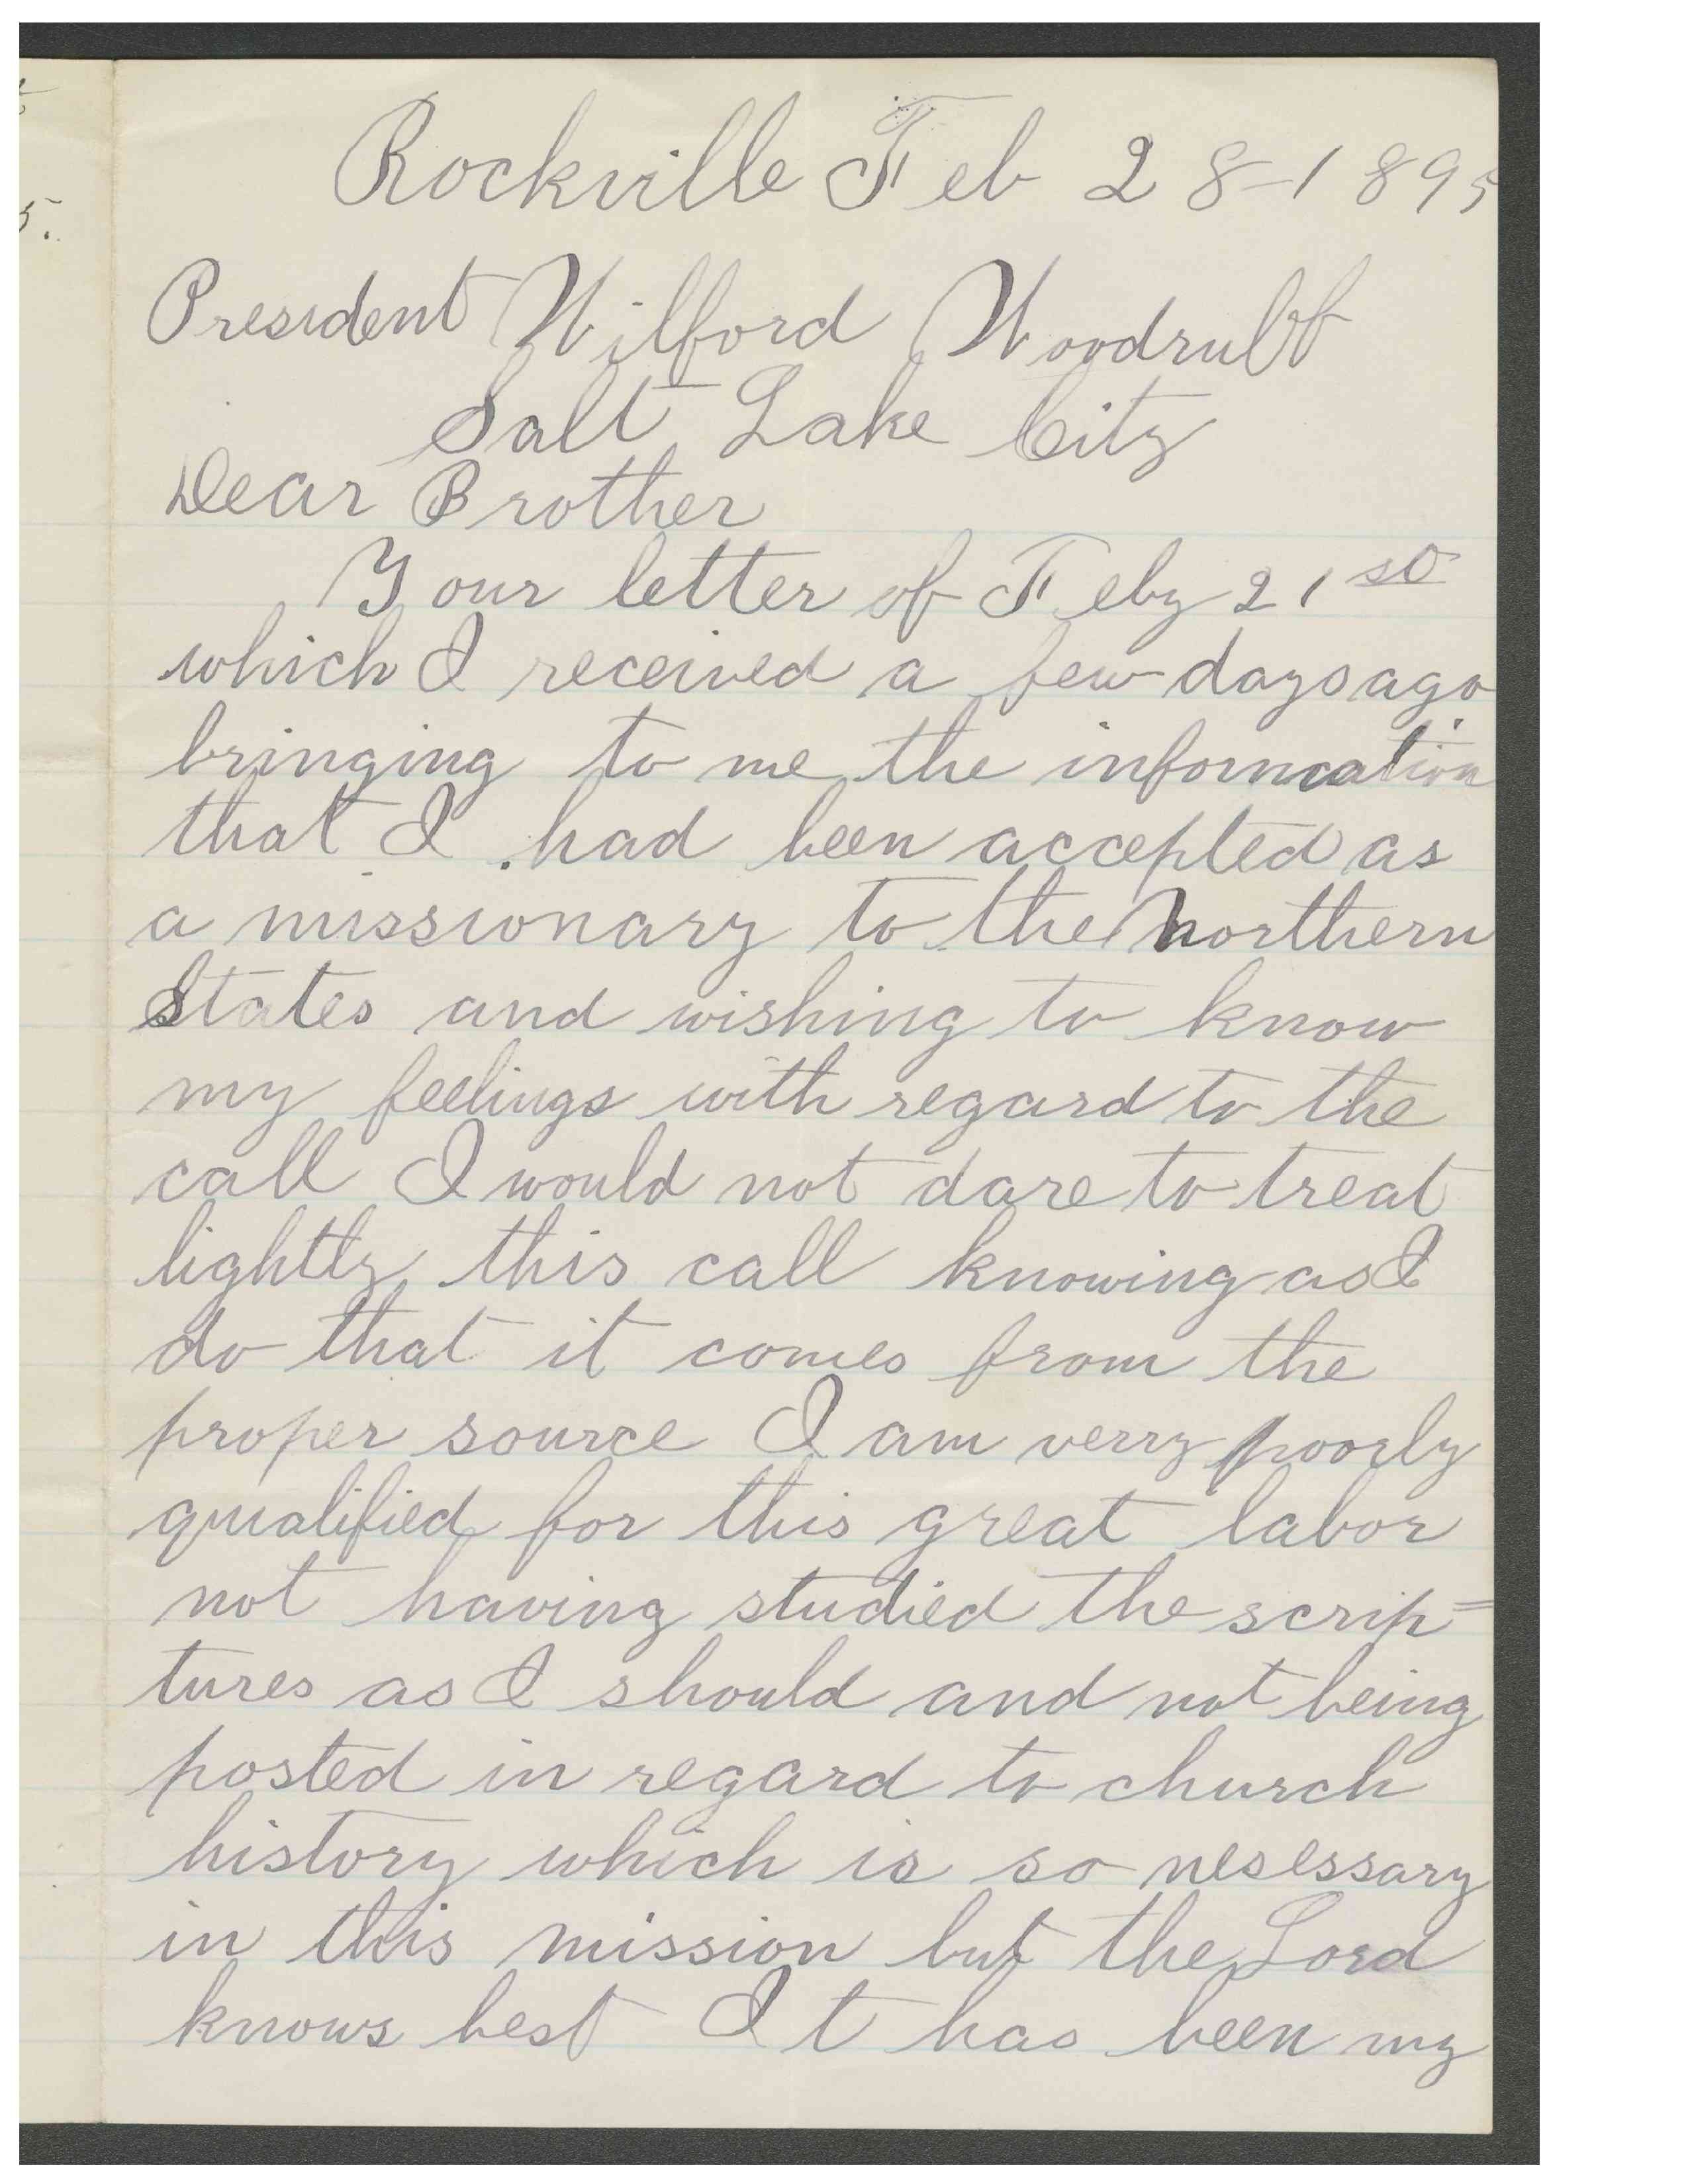 Rockville Feb 28-1895
President Wilford Woodruff
Salt Lake City
Dear Brother
Your letter of Feby 21st
which I received a few days ago
bringing to me the information
that I had been accepted as
a missionary to the Northern
States and wishing to know
my feelings with regard to the
call I would not dare to treat
lightly this call knowing as I
do that it comes from the
proper source I am verry poorly
qualified for this great labor
not having studied the scrip=
tures as I should and not being
posted in regard to church
history which is so nesessary
in this mission but the Lord
knows best It has been my